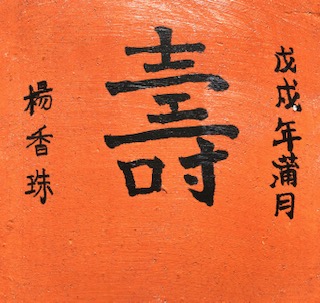 戊戌年蒲月
壽
楊香珠